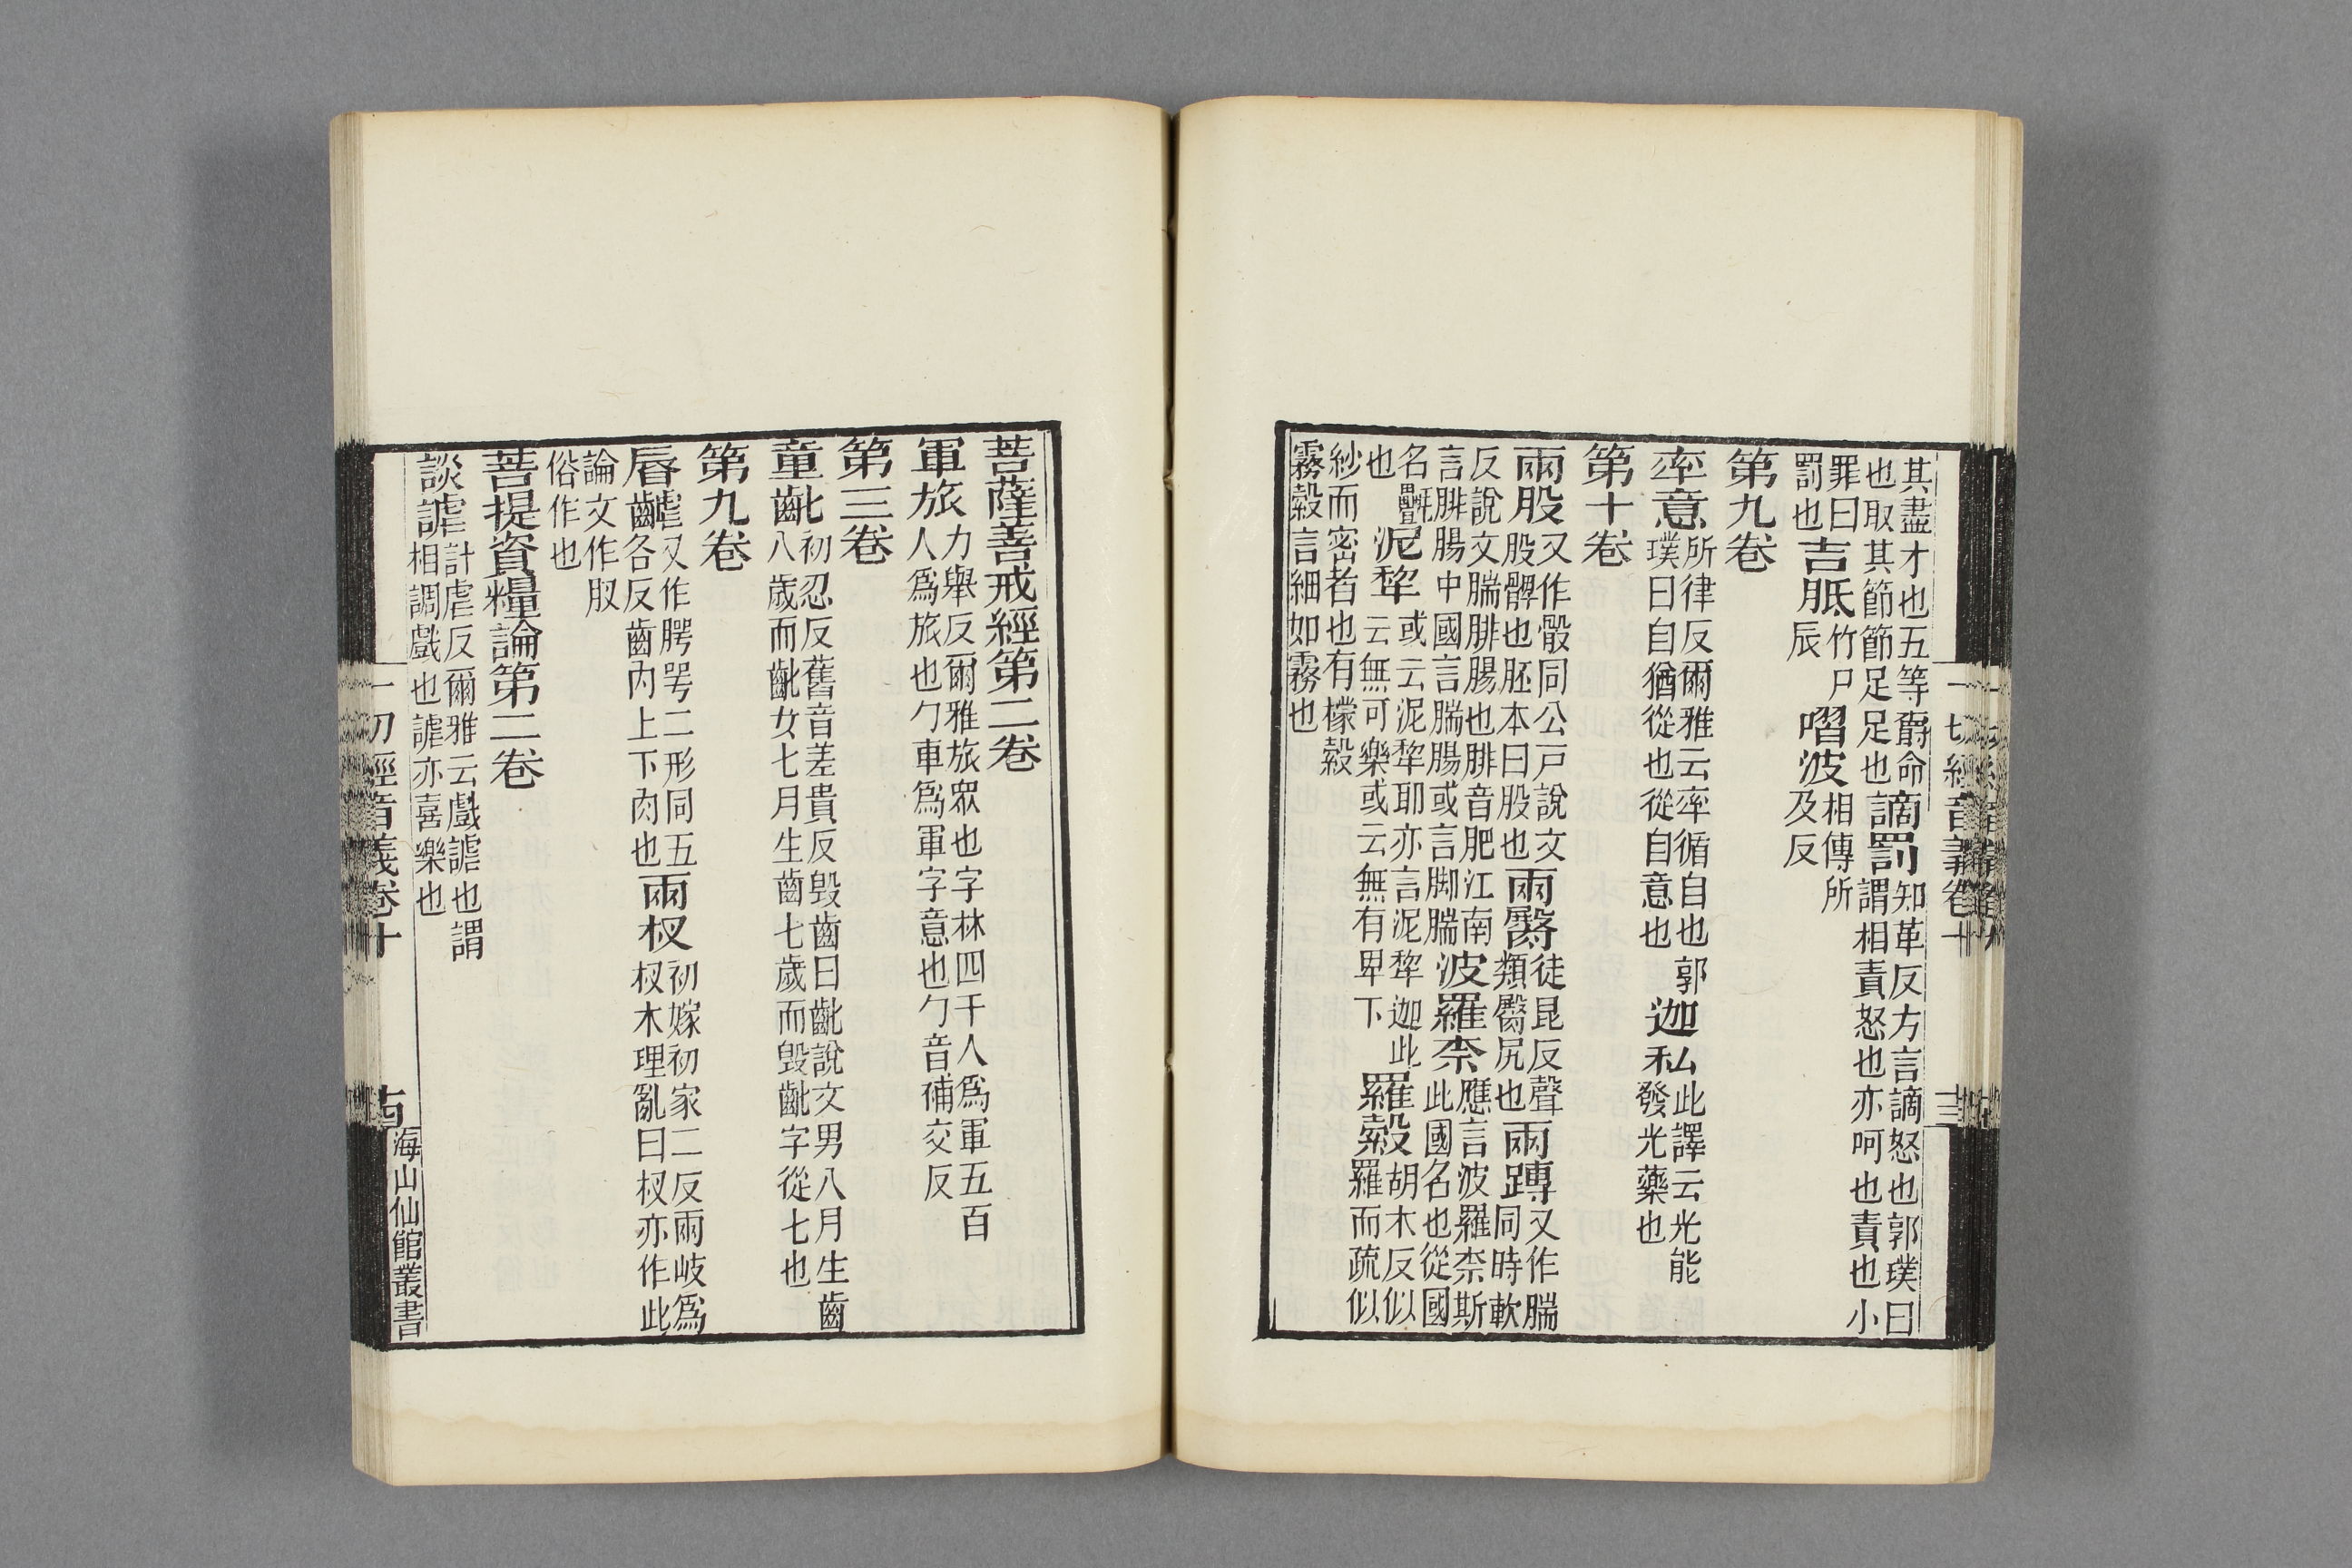 其盡才也五等爵命謫罰知革反方言謫怒也郭璞曰
也取其節節足足也謂相責怒也亦呵也責也小
罪曰吉胝竹尸㗩波相傳所
罰也辰及反
第九卷
率意所律反爾雅云率循自也郭迦私此譯云光能
璞曰自猶從也從自意也發光藥也
第十卷
兩股又作骰同公戸說文兩臋徒昆反聲兩䏝又作腨
股髀也胚本曰股也類臋尻也同時軟
反說文腨腓腸也腓音肥江南波羅柰應言波羅柰斯
言腓腸中國言腨腸或言脚腨此國名也從國
名㲲泥犂或云泥犂耶亦言泥犂迦此羅縠胡木反似
也云無可樂或云無有卑下羅而疏似
紗而密者也有㯢縠
霧縠言細如霧也
一切經音義卷十
十三
菩薩善戒經第二卷
軍旅力舉反爾雅旅眾也字林四千人爲軍五百
人爲旅也勹車爲軍字意也勹音補交反
第三卷
童齔初忍反舊音差貴反毀齒曰齔說文男八月生齒
八歲而齔女七月生齒七歲而毀齔字從七也
第九卷
脣齶又作腭咢二形同五
各反齒內上下肉也兩杈初嫁初家二反兩岐爲
杈木理亂曰杈亦作此
論文作肞
俗作也
菩提資糧論第二卷
談謔計虐反爾雅云戲謔也謂
相調戲也謔亦喜樂也
一切經音義卷十
古
海山仙館叢書